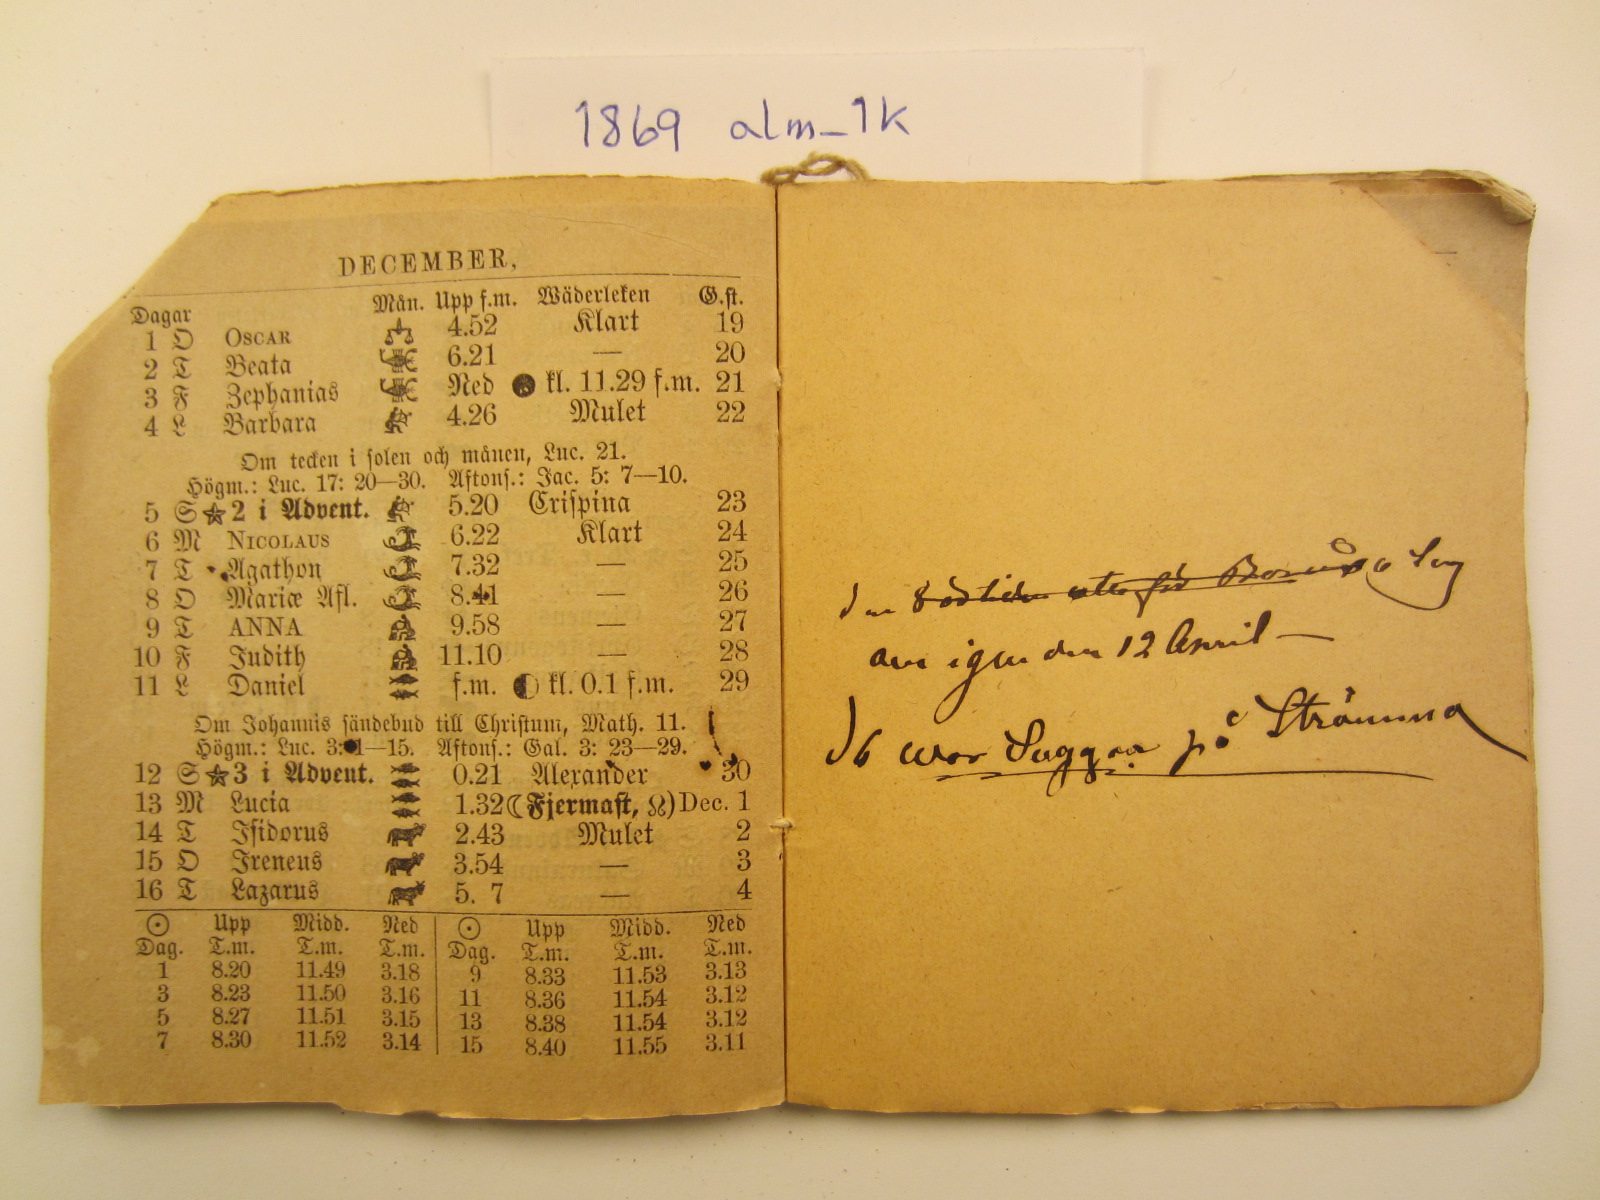 1869 alm_1k
DECEMBER,
Dagar Mån. Upp f.m. Wäderleken G.st.
1 O OSCAR 4.52 Klart 19
2 T Beata 6.21 — 20
3 F Zephanias Ned kl. 11.29 f.m. 21
4 L Barbara 4.26 Mulet 22
Om tecken i solen och månen, Luc. 21.
Högm.: Luc. 17: 20—30. Aftons.: Jac. 5: 7—10.
5 S 2 i Advent. 5.20 Crispina 23
6 M NICOLAUS 6.22 Klart 24
7 T Agathon 7.32 — 25
8 O Mariæ Afl. 8.41 — 26
9 T ANNA 9.58 — 27
10 F Judith 11.10 — 28
11 L Daniel f.m. kl. 0.1 f.m. 29
Om Johannis sändebud till Christum, Math. 11.
Högm.: Luc. 3: 1—15. Aftons.: Gal. 3: 23—29.
12 S 3 i Advent. 0.21 Alexander 30
13 M Lucia 1.32 (Fjermast, ☊) Dec. 1
14 T Isidorus 2.43 Mulet 2
15 O Ireneus 3.54 — 3
16 T Lazarus 5. 7 — 4
☉ Upp Midd. Ned ☉ Upp Midd. Ned
Dag. T.m. T.m. T.m. Dag. T.m. T.m. T.m.
1 8.20 11.49 3.18 9 8.33 11.53 3.13
3 8.23 11.50 3.16 11 8.36 11.54 3.12
5 8.27 11.51 3.15 13 8.38 11.54 3.12
7 8.30 11.52 3.14 15 8.40 11.55 3.11
den 8
igen den 12 April —
16 war på Strömma